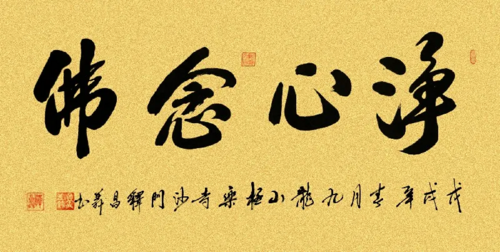 淨心念佛
戊戌年春月九龍山極樂寺沙門釋昌书